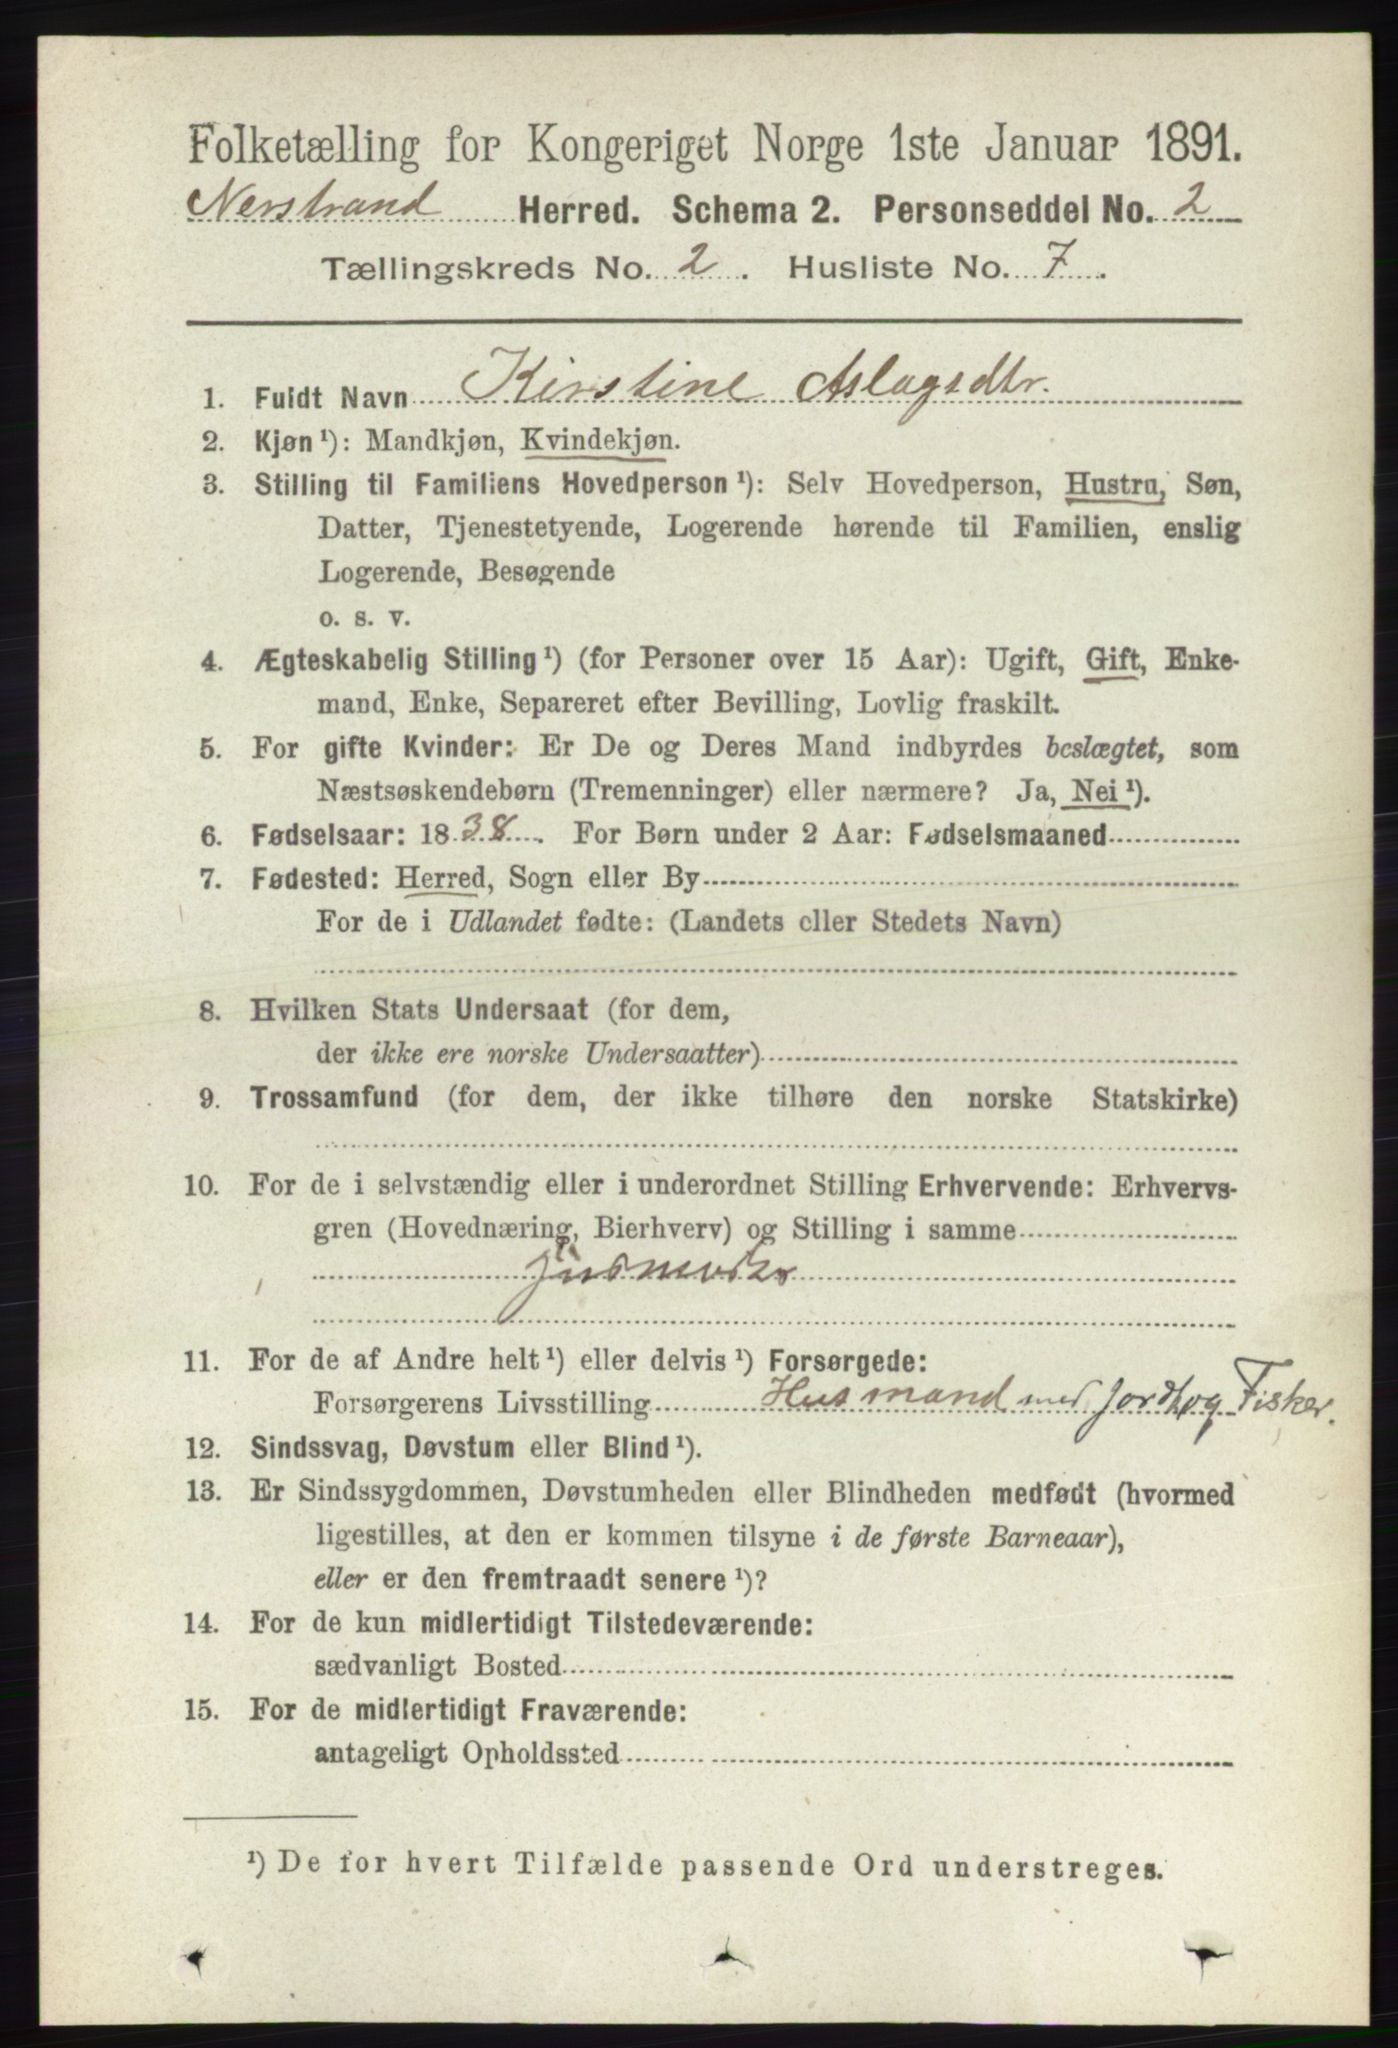 Folketælling for Kongeriget Norge 1ste Januar 1891.
Nerstrand Herred. Schema 2. Personseddel No. 2
Tællingskreds No. 2. Husliste No. 7.
1. Fuldt Navn Kirstine Aslagsdtr.
2. Kjøn ¹): Mandkjøn, Kvindekjøn.
3. Stilling til Familiens Hovedperson ¹): Selv Hovedperson, Hustru, Søn,
Datter, Tjenestetyende, Logerende hørende til Familien, enslig
Logerende, Besøgende
o. s. v.
4. Ægteskabelig Stilling ¹) (for Personer over 15 Aar): Ugift, Gift, Enke-
mand, Enke, Separeret efter Bevilling, Lovlig fraskilt.
5. For gifte Kvinder: Er De og Deres Mand indbyrdes beslægtet, som
Næstsøskendebørn (Tremenninger) eller nærmere? Ja, Nei ¹).
6. Fødselsaar: 1838. For Børn under 2 Aar: Fødselsmaaned
7. Fødested: Herred, Sogn eller By
For de i Udlandet fødte: (Landets eller Stedets Navn)
8. Hvilken Stats Undersaat (for dem,
der ikke ere norske Undersaatter)
9. Trossamfund (for dem, der ikke tilhøre den norske Statskirke)
10. For de i selvstændig eller i underordnet Stilling Erhvervende: Erhvervs-
gren (Hovednæring, Bierhverv) og Stilling i samme
11. For de af Andre helt ¹) eller delvis ¹) Forsørgede:
Forsørgerens Livsstilling Husmand med Jord og Fisker.
12. Sindssvag, Døvstum eller Blind ¹).
13. Er Sindssygdommen, Døvstumheden eller Blindheden medfødt (hvormed
ligestilles, at den er kommen tilsyne i de første Barneaar),
eller er den fremtraadt senere ¹)?
14. For de kun midlertidigt Tilstedeværende:
sædvanligt Bosted
15. For de midlertidigt Fraværende:
antageligt Opholdssted
¹) De for hvert Tilfælde passende Ord understreges.